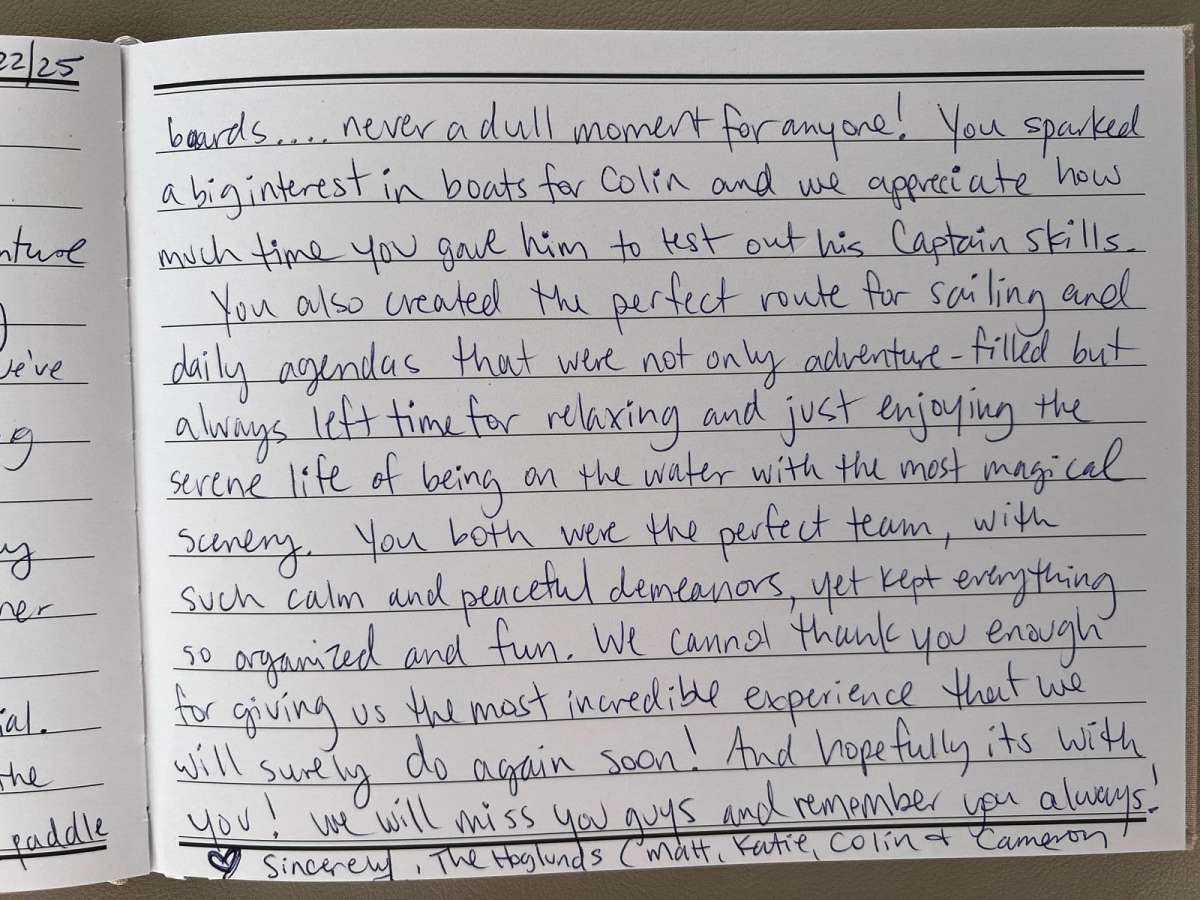 22/25
nture
)
ve've
g
y
ner
ial.
the
paddle
boards.... never a dull moment for anyone! You sparked
a big interest in boats for Colin and we appreciate how
much time you gave him to test out his Captain skills.
You also created the perfect route for sailing and
daily agendas that were not only adventure-filled but
always left time for relaxing and just enjoying the
serene life of being on the water with the most magical
scenery. You both were the perfect team, with
such calm and peaceful demeanors, yet kept everything
so organized and fun. We cannot thank you enough
for giving us the most incredible experience that we
will surely do again soon! And hopefully its with
you! We will miss you guys and remember you always!
♡ Sincerely, The Hoglunds (Matt, Katie, Colin & Cameron